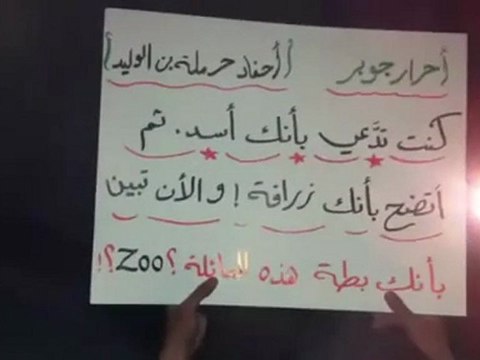 أحرار جوبر (أحفاد حرملة بن الوليد)
كنت تدَّعي بأنك أسد. ثم
أتضح بأنك زرافة! والأن تبين
بأنك بطة هذه العائلة؟ ZOO؟!